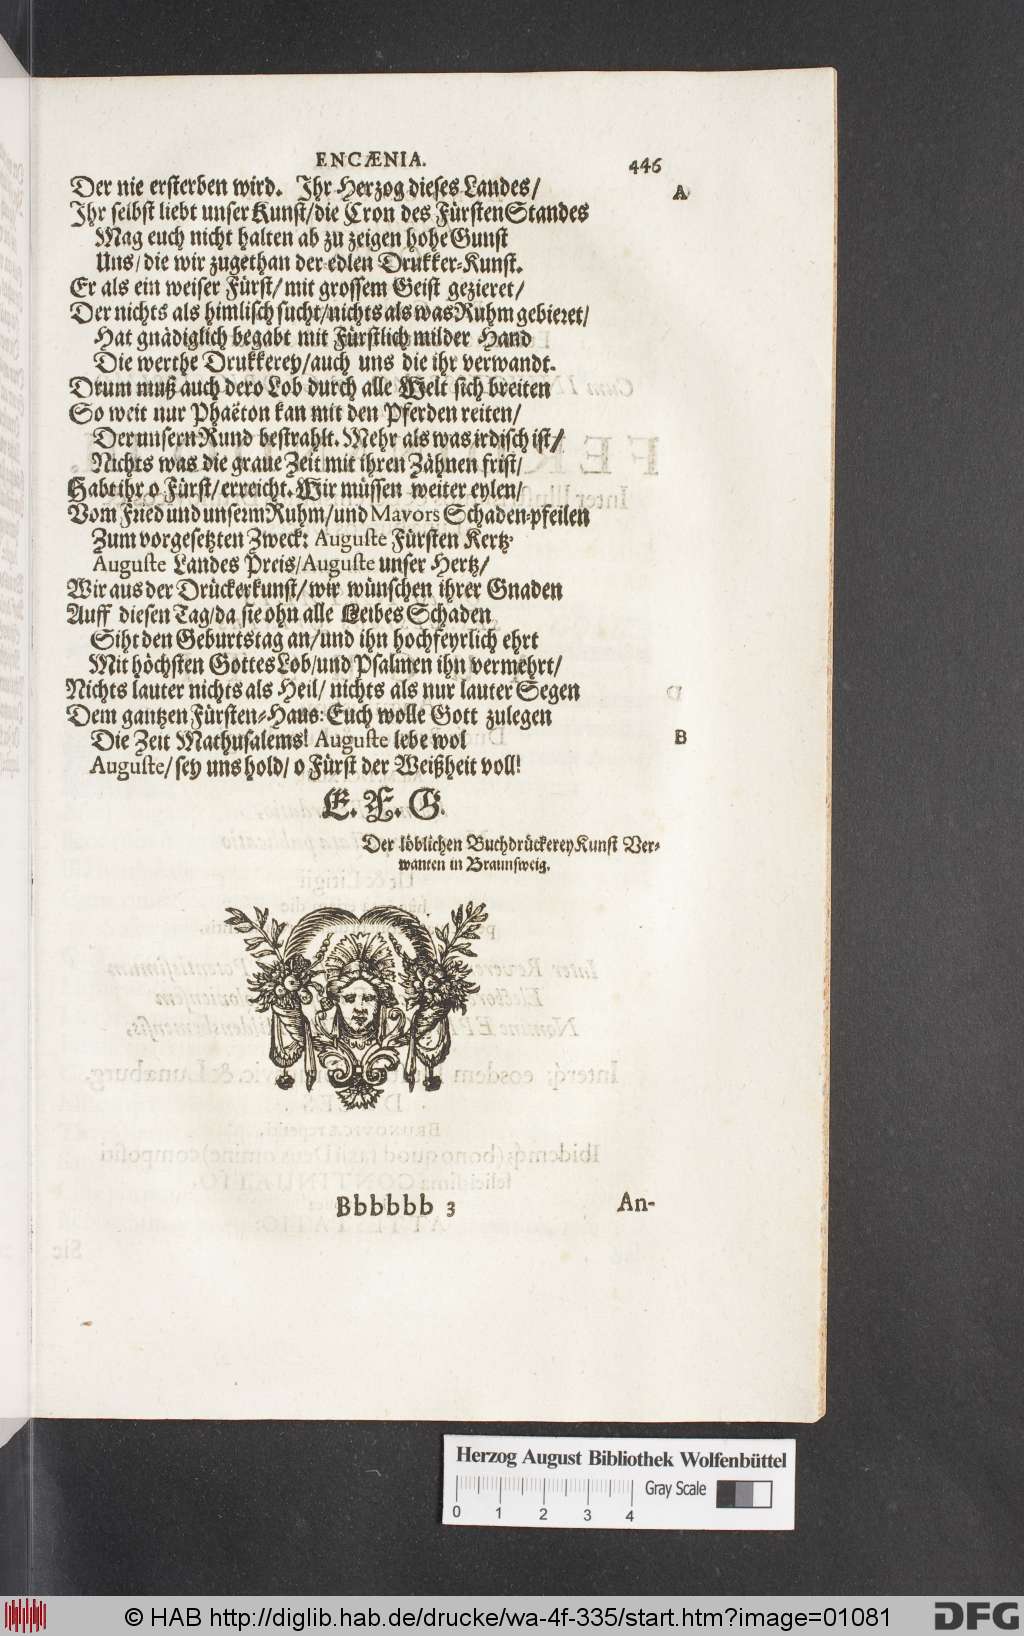 ENCÆNIA.
446
Der nie ersterben wird. Ihr Herzog dieses Landes/
A
Ihr selbst liebt unser Kunst/die Cron des FürstenStandes
Mag euch nicht halten ab zu zeigen hohe Gunst
Uns/die wir zugethan der edlen Drukker-Kunst.
Er als ein weiser Fürst/mit grossem Geist gezieret/
Der nichts als himlisch sucht/nichts als was Ruhm gebieret/
Hat gnädiglich begabt mit Fürstlich milder Hand
Die werthe Drukkerey/auch uns die ihr verwandt.
Drum muß auch dero Lob durch alle Welt sich breiten
So weit nur Phaëton kan mit den Pferden reiten/
Der unsern Rund bestrahlt. Mehr als was irdisch ist/
Nichts was die graue Zeit mit ihren Zähnen frist/
Habt ihr o Fürst/erreicht. Wir müssen weiter eylen/
Vom Fried und unserm Ruhm/und Mavors Schaden-pfeilen
Zum vorgesetzten Zweck: Auguste Fürsten Kertz
Auguste Landes Preis/Auguste unser Hertz/
Wir aus der Drückerkunst/wir wünschen ihrer Gnaden
Auff diesen Tag/da sie ohn alle Leibes Schaden
Siht den Geburtstag an/und ihn hochfeyrlich ehrt
Mit höchsten Gottes Lob/und Psalmen ihn vermehrt/
Nichts lauter nichts als Heil/ nichts als nur lauter Segen
Dem gantzen Fürsten-Haus: Euch wolle Gott zulegen
Die Zeit Mathusalems! Auguste lebe wol
B
Auguste/sey uns hold/o Fürst der Weißheit voll!
E. F. G.
Der löblichen Buchdrückerey Kunst Ver-
wanten in Braunsweig.
Bbbbbb 3
An-
Herzog August Bibliothek Wolfenbüttel
Gray Scale
0 1 2 3 4
© HAB http://diglib.hab.de/drucke/wa-4f-335/start.htm?image=01081
DFG